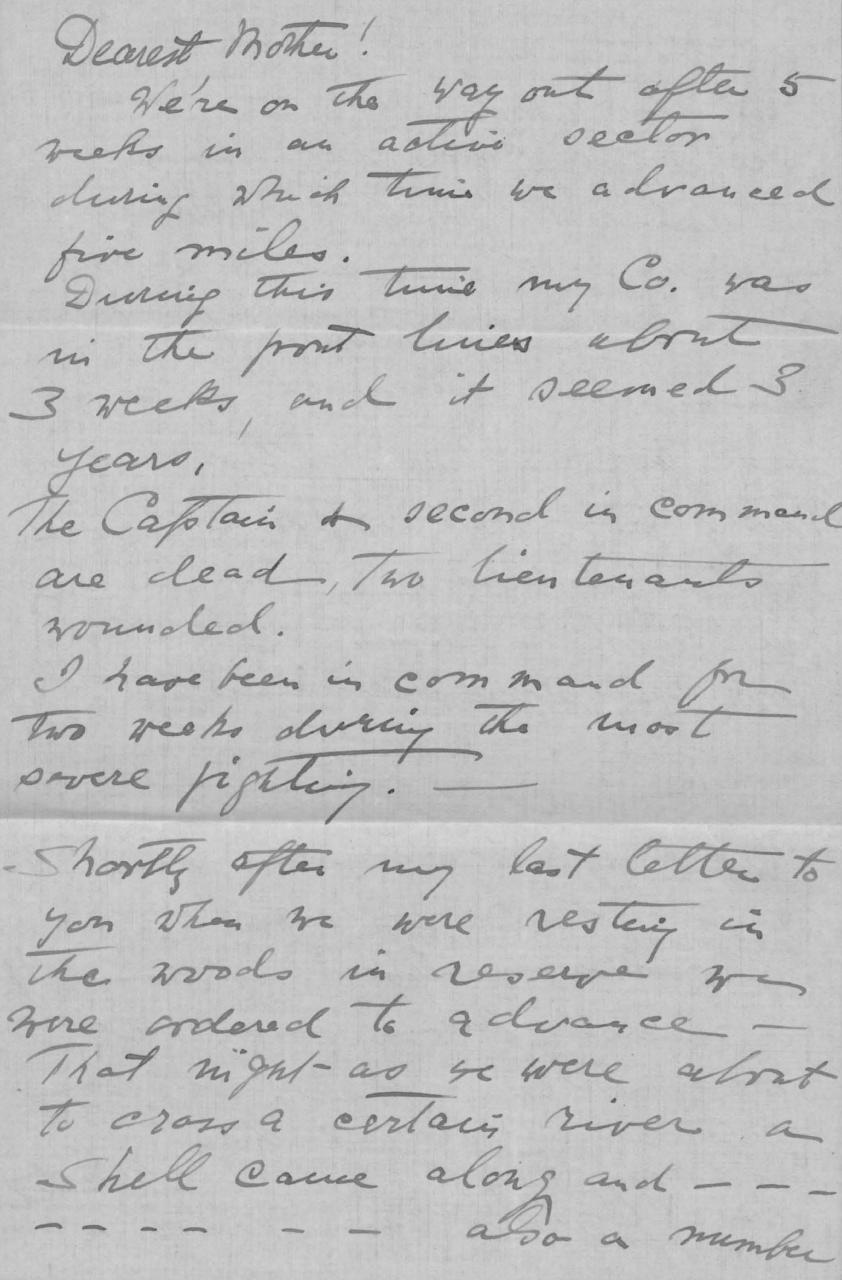 Dearest Mother!
We're on the way out after 5
weeks in an active sector
during which time we advanced
five miles.
During this time my Co. was
in the front lines about
3 weeks, and it seemed 3
years.
The Captain & second in command
are dead, Two lieutenants
wounded.
I have been in command for
two weeks during the most
severe fighting. —
Shortly after my last letter to
you when we were resting in
the woods in reserve we
were ordered to advance —
That night as we were about
to cross a certain river a
Shell came along and - - -
- - - - - - also a number